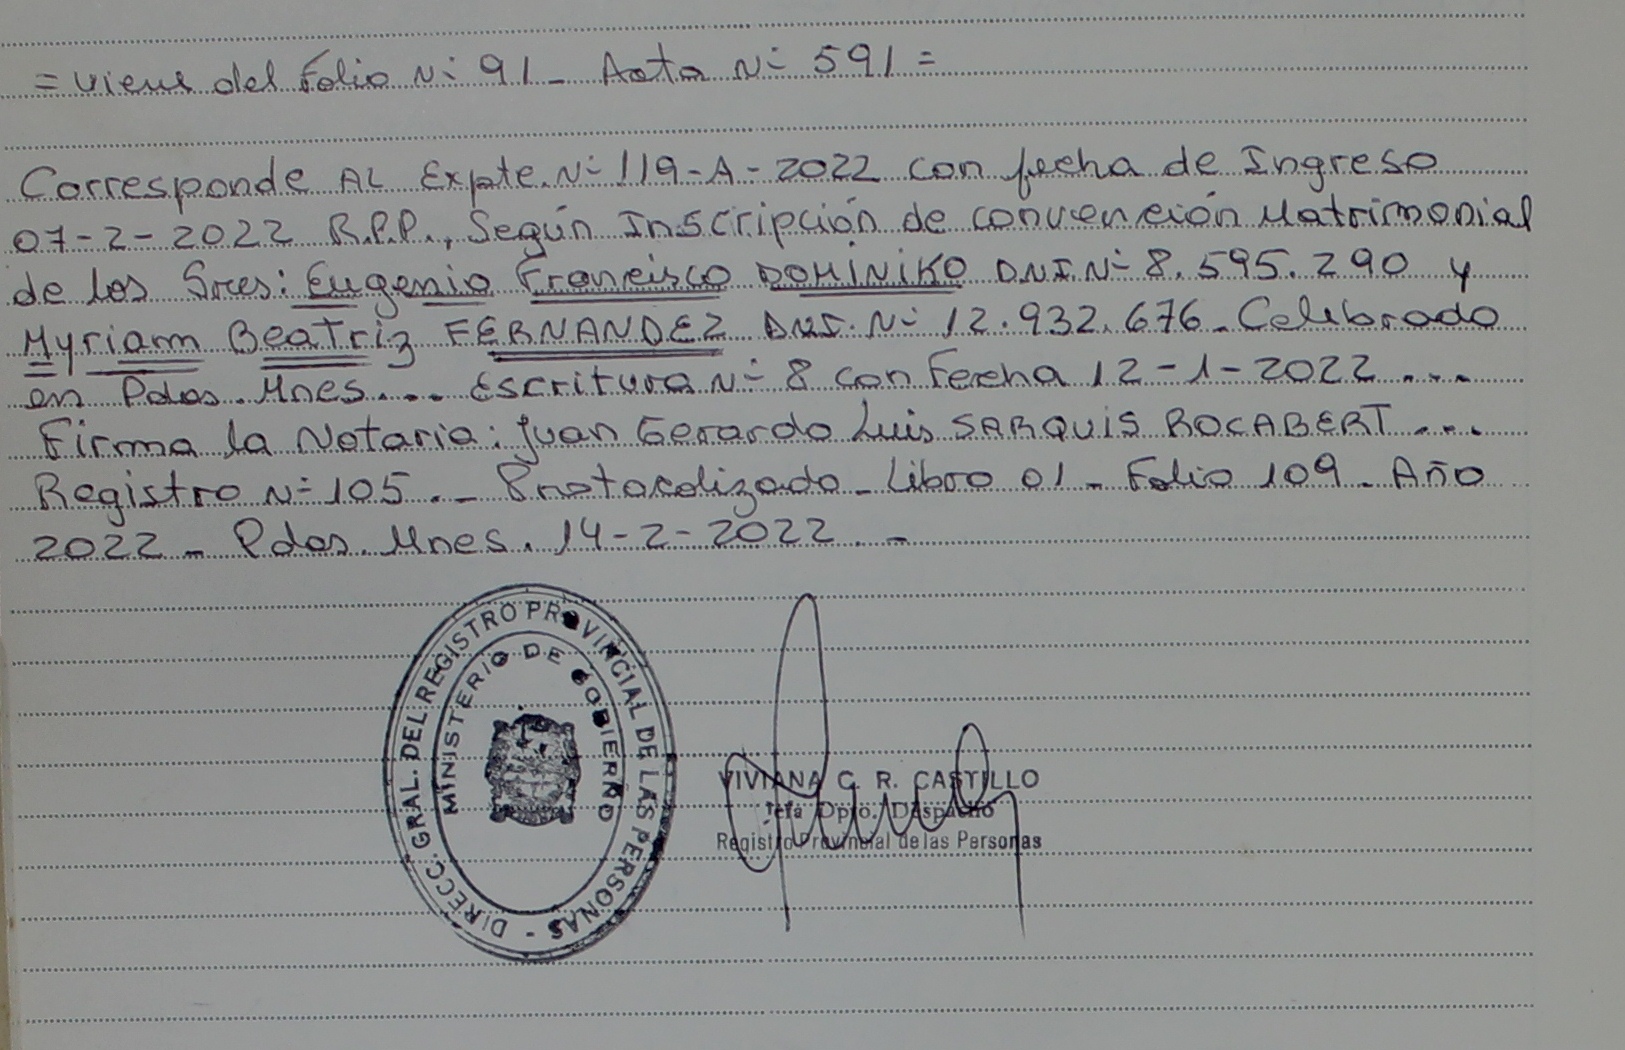 = Viene del Folio N- 91 - Acta N- 591 =
Corresponde AL Expte. N- 119-A-2022 con fecha de Ingreso
07-2-2022 R.P.P., Según Inscripción de convención Matrimonial
de los Sres: Eugenio Francisco DOMINIKO D.N.I. N- 8.595.290 y
Myriam Beatriz FERNANDEZ DNI. N- 12.932.676. Celebrado
en Pdas. Mnes.... Escritura N- 8 con Fecha 12-1-2022 ...
Firma la Notaria: Juan Gerardo Luis SARQUIS ROCABERT ...
Registro N- 105 .- Protocolizado - Libro 01 - Folio 109 - Año
2022 - Pdas. Mnes. 14-2-2022 . -
DIRECC. GRAL. DEL REGISTRO PROVINCIAL DE LAS PERSONAS -
MINISTERIO DE GOBIERNO
VIVIANA C. R. CASTILLO
Jefa Dpto. Despacho
Registro Provincial de las Personas